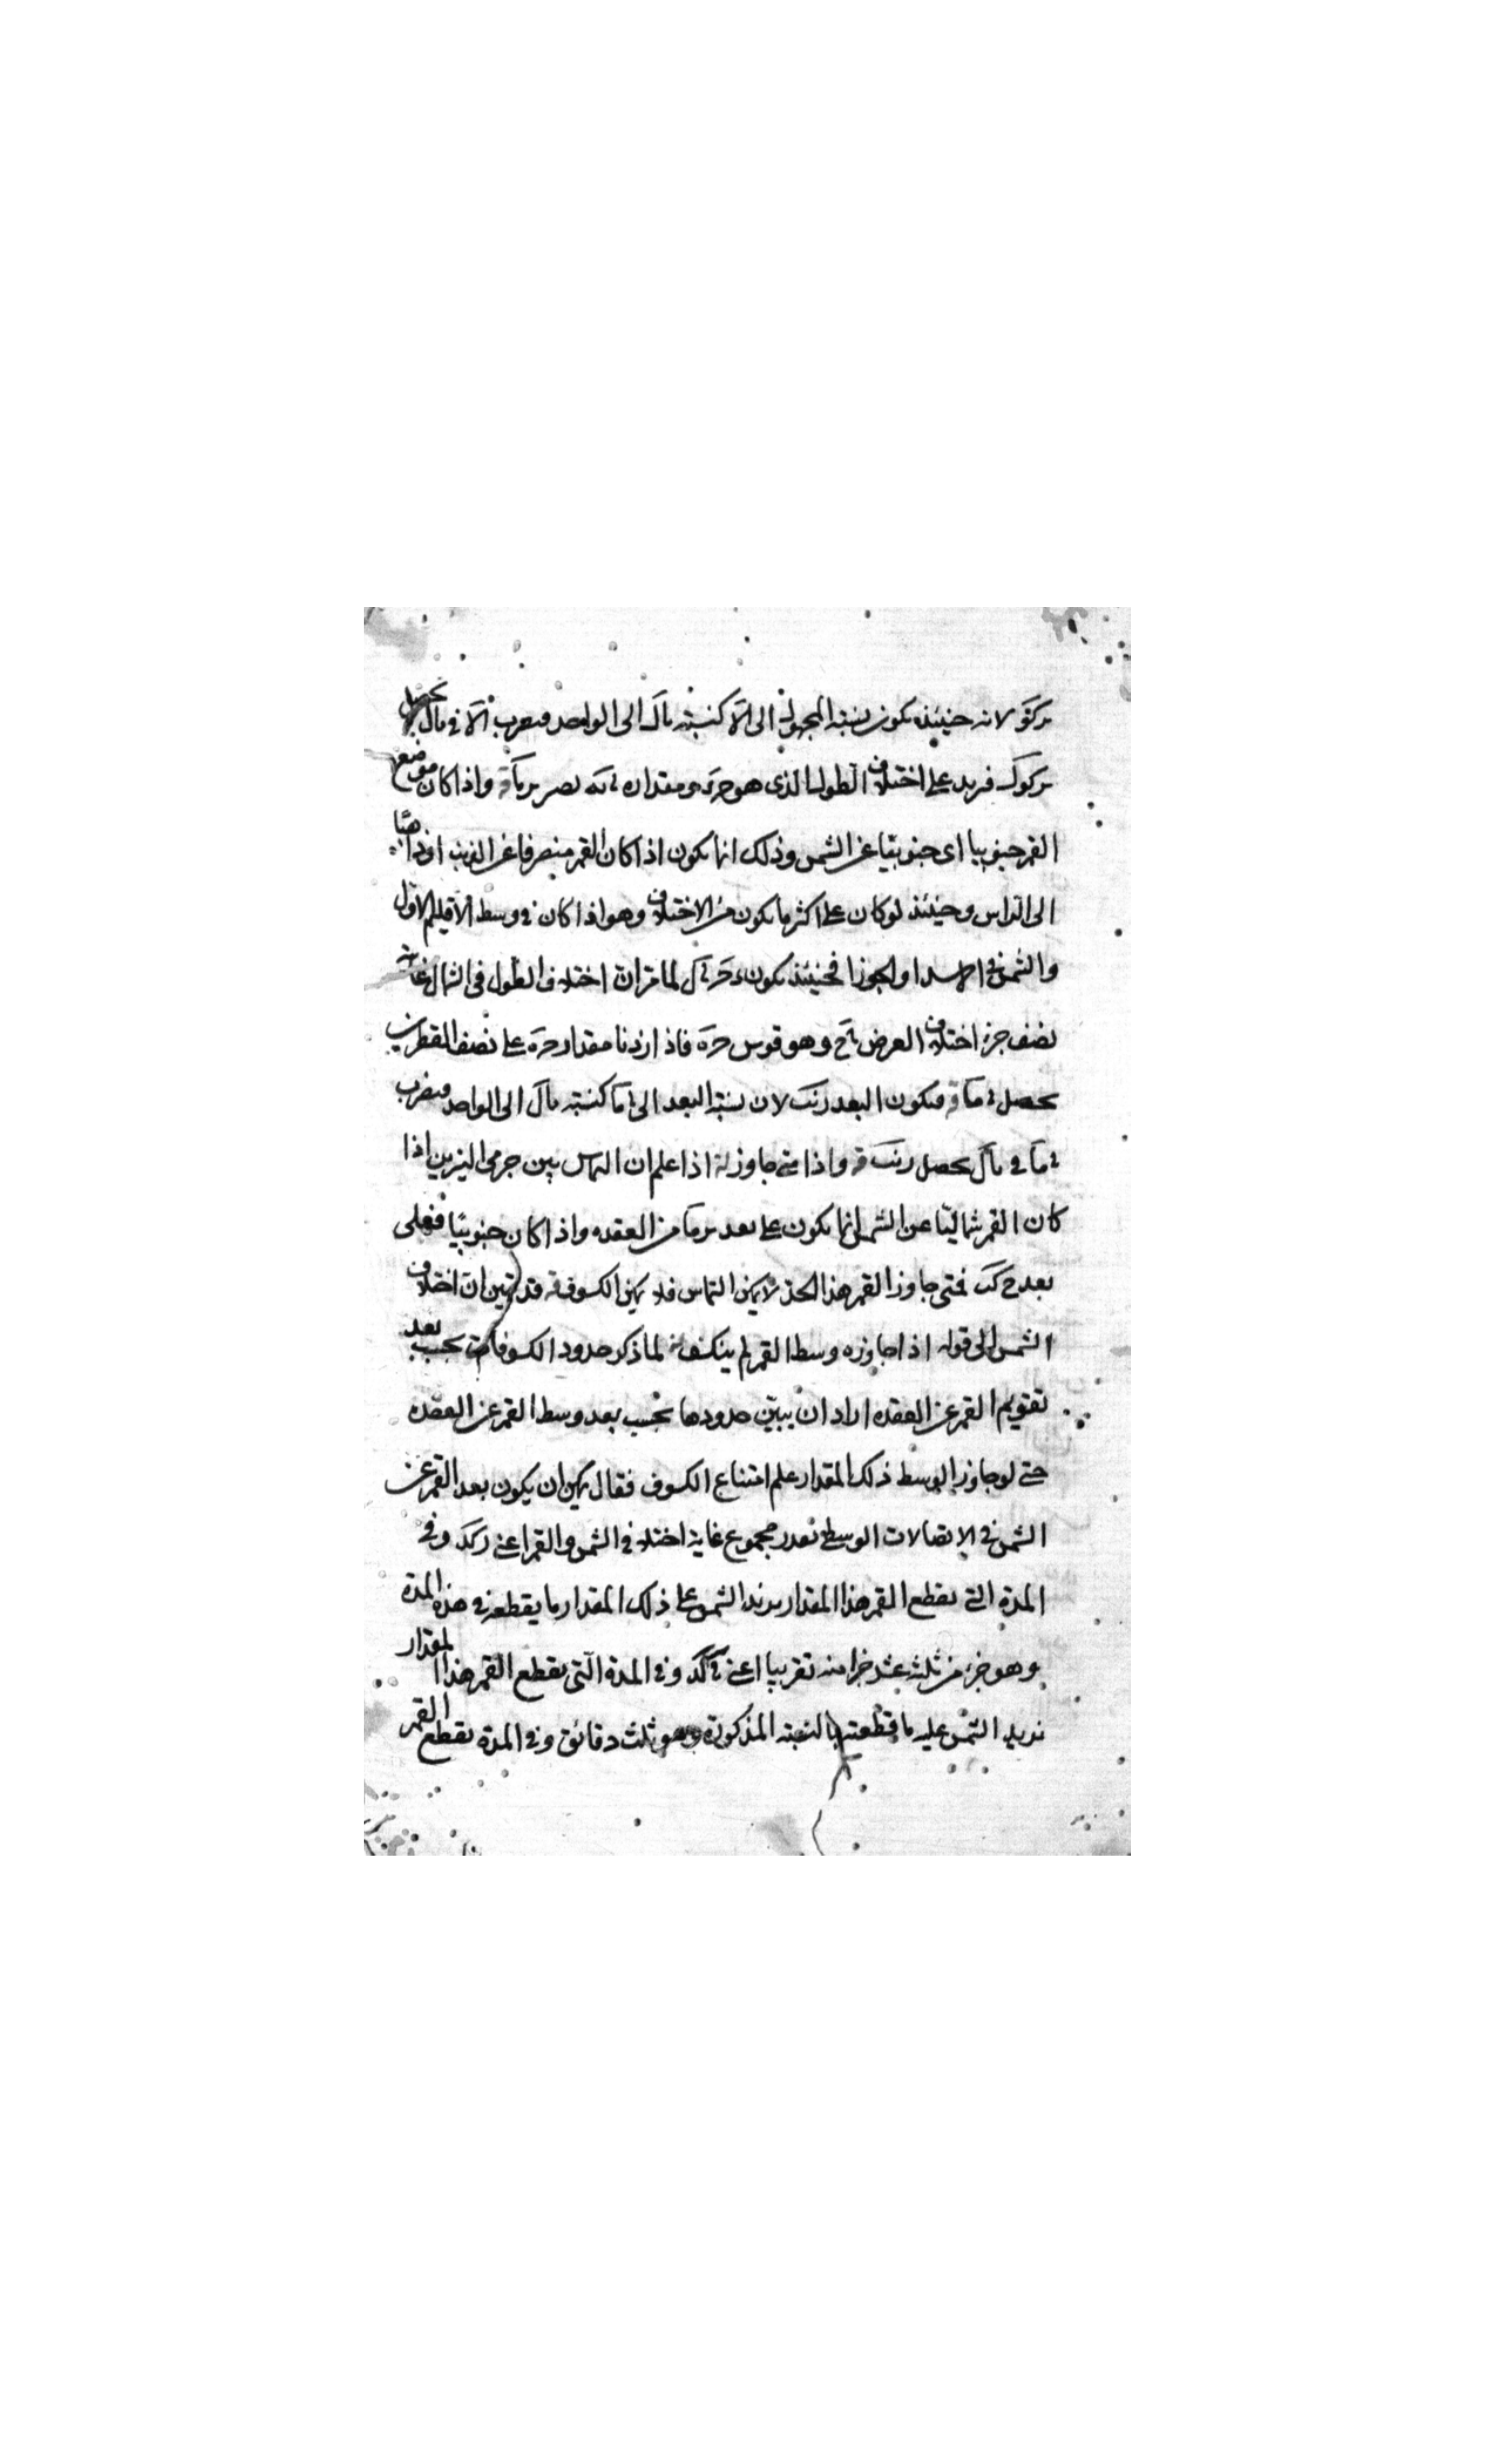 لانه حينئذ يكون نسبة المجهول الى كنسبة الى الواحد فيضرب في يحصل
فزيد على اختلاف الطول الذي هو ومقداره يصير واذا كان موضع
القمر جنوبيا اى جنوبيا عن الشمس وذلك انما يكون اذا كان القمر منصرفا عن الذنب او ذاهبا
الى الراس وحينئذ لو كان على اكثر ما يكون من الاختلاف وهو اذا كان في وسط الاقليم الاول
والشمس في الاسد او الجوزا فحينئذ يكون لما مر ان اختلاف الطول في الشمال غاية
نصف جزء اختلاف العرض وهو قوس فاذا زدنا مقدار على نصف القطرين
يحصل فيكون البعد لان نسبة البعد الى كنسبة الى الواحد فيضرب
في يحصل واذا متى جاوز اذا علم ان التماس بين جرمي النيرين اذا
كان القمر شماليا عن الشمس انما يكون على بعد من العقده واذا كان جنوبيا فعلى
بعد فمتى جاوز القمر هذا الحد لا يمكن التماس فلا يمكن الكسوف قد تبين ان اختلاف
الشمس الى قوله اذا جاوزه وسط القمر لم ينكسف لما ذكر حدود الكسوفات بحسب بعد
تقويم القمر عن العقده اراد ان يبين حدودها بحسب بعد وسط القمر عن العقده
حتى لو جاوز الوسط ذلك المقدار علم امتناع الكسوف فقال يمكن ان يكون بعد القمر عن
الشمس في الاتصالات الوسطى بقدر مجموع غاية اختلافي الشمس والقمر اعني وفي
المدة التي يقطع القمر هذا المقدار يزيد الشمس على ذلك المقدار ما يقطعه في هذه المدة
وهو جزء من ثلثة عشر جزا منه تقريبا اعني وفي المدة التي يقطع القمر هذا المقدار
يزيد الشمس عليه ما قطعته بالنسبة المذكورة وهو ثلث دقائق وفي المدة يقطع القمر